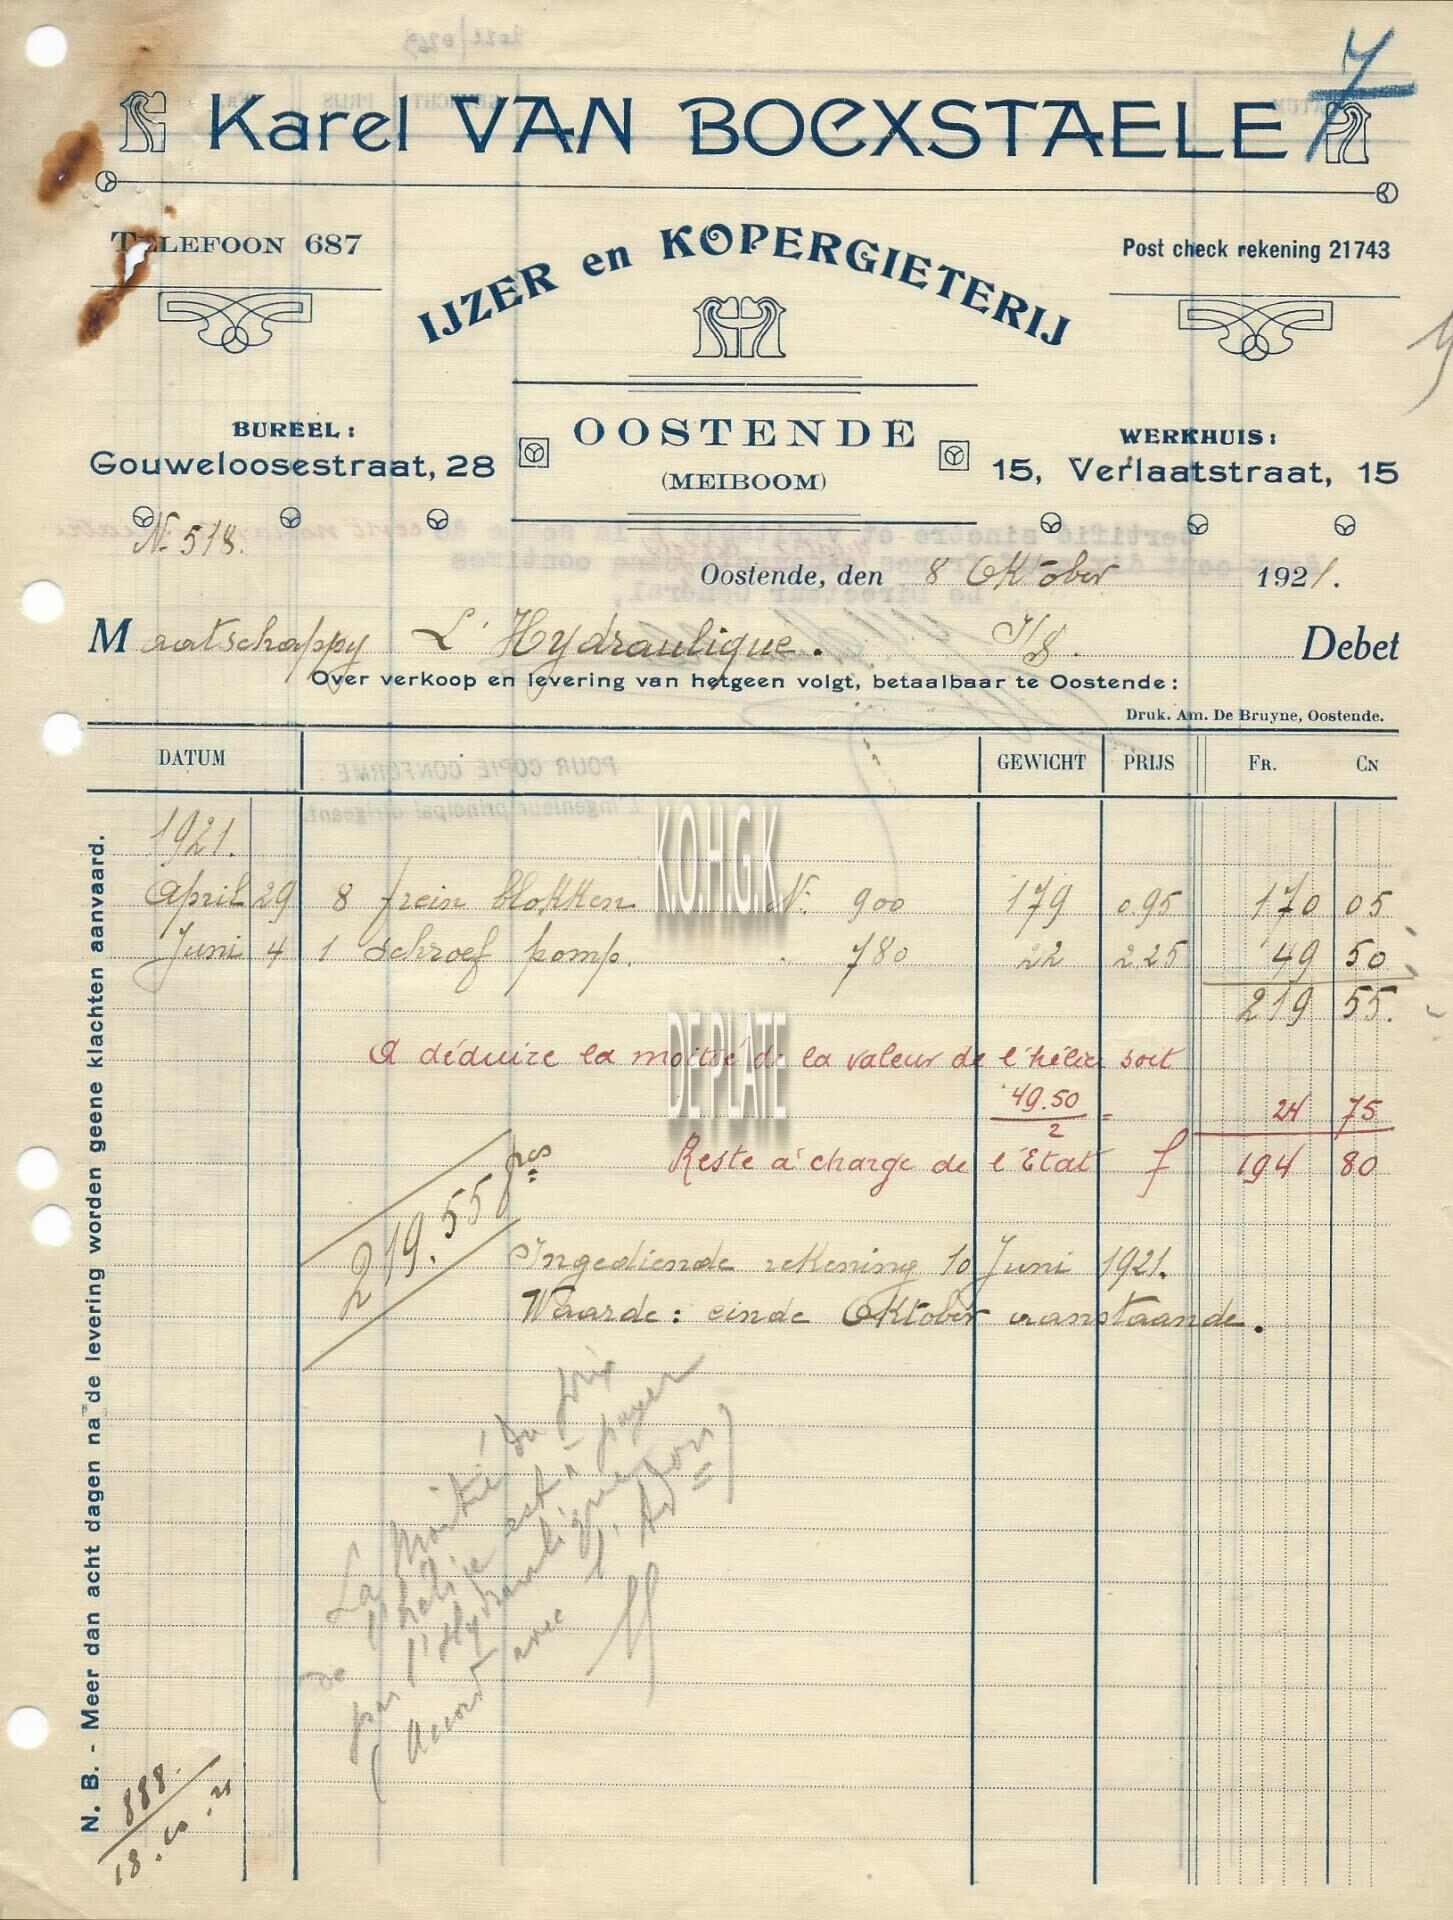 7
Karel VAN BOEXSTAELE
TELEFOON 687
IJZER en KOPERGIETERIJ
Post check rekening 21743
BUREEL:
Gouweloosestraat, 28
OOSTENDE
(MEIBOOM)
WERKHUIS:
15, Verlaatstraat, 15
N. 518.
Oostende, den 8 Oktober 1921.
Maatschappy L'Hydraulique. Debet
Over verkoop en levering van hetgeen volgt, betaalbaar te Oostende:
Druk. Am. De Bruyne, Oostende.
DATUM GEWICHT PRIJS FR. CN
1921.
April 29 8 frein blokken N. 900 179 0.95 170 05
Juni 4 1 schroef pomp. 780 22 2.25 49 50
219 55.
A déduire la moitié de la valeur de l'hélice soit
49.50
2 = 24 75
Reste à charge de l'Etat f 194 80
219.55 frcs
Ingediende rekening 10 Juni 1921.
Waarde: einde Oktober aanstaande.
La moitié du prix
de l'hélice est à payer
par l'Hydraulique
(Accord avec
N. B. - Meer dan acht dagen na de levering worden geene klachten aanvaard.
888.
18.10.21
K.O.H.G.K
DE PLATE
POUR COPIE CONFORME :
L'Ingénieur principal dirigeant.
Le Directeur Général,